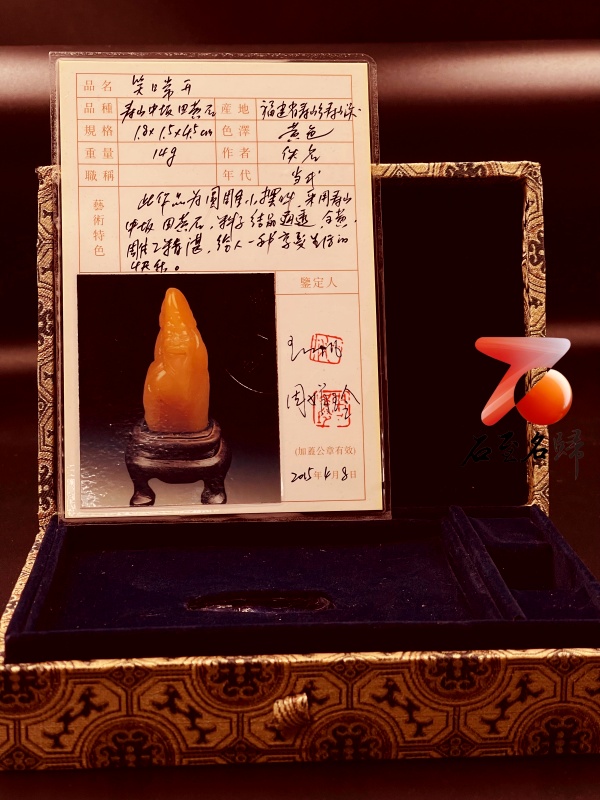 品名 笑口常开
品種 寿山中坂田黄石 産地 福建省寿山乡寿山溪
規格 1.8×1.5×4.5cm 色澤 黄色
重量 14g 作者 佚名
職稱 年代 当代
藝術特色
此作品为圆雕小摆件，采用寿山
中坂田黄石，料子结晶通透，全黄，
雕工精湛，给人一种享受生活的
快乐。
鑒定人
(加蓋公章有效)
2015年4月8日
石至名歸